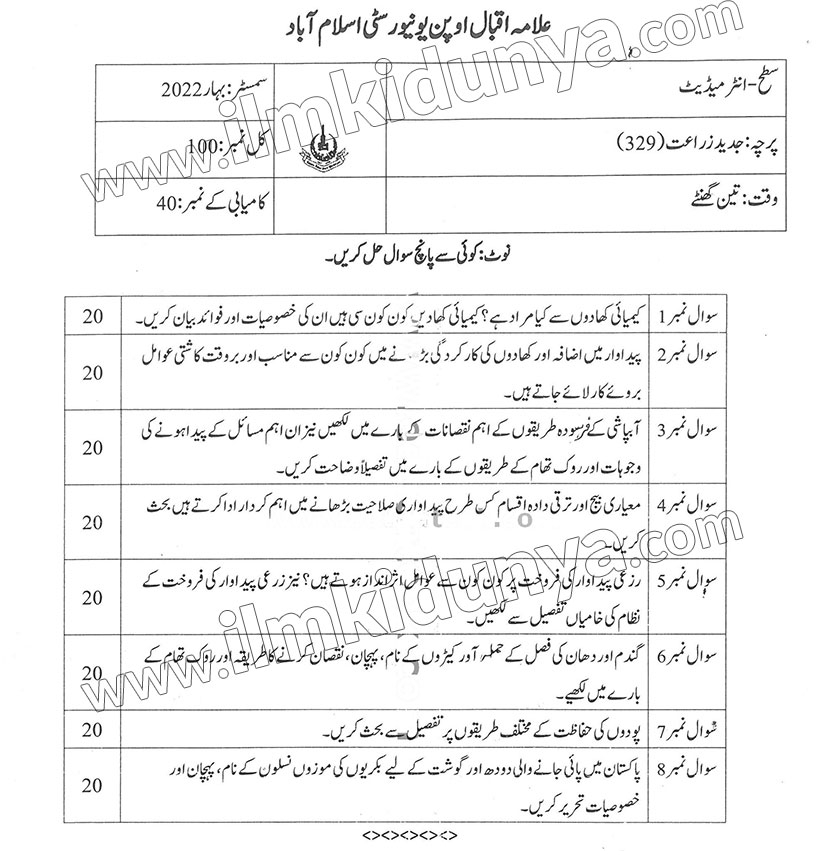 علامہ اقبال اوپن یونیورسٹی اسلام آباد
سطح-انٹرمیڈیٹ
سمسٹر: بہار 2022
پرچہ: جدید زراعت (329)
کل نمبر: 100
وقت: تین گھنٹے
کامیابی کے نمبر: 40
نوٹ: کوئی سے پانچ سوال حل کریں۔
سوال نمبر 1 کیمیائی کھادوں سے کیا مراد ہے؟ کیمیائی کھادیں کون کون سی ہیں ان کی خصوصیات اور فوائد بیان کریں۔ 20
سوال نمبر 2 پیداوار میں اضافہ اور کھادوں کی کارکردگی بڑھانے میں کون کون سے مناسب اور بروقت کاشتی عوامل
بروئے کار لائے جاتے ہیں۔ 20
سوال نمبر 3 آبپاشی کے فرسودہ طریقوں کے اہم نقصانات کے بارے میں لکھیں نیز ان اہم مسائل کے پیدا ہونے کی
وجوہات اور روک تھام کے طریقوں کے بارے میں تفصیلاً وضاحت کریں۔ 20
سوال نمبر 4 معیاری بیج اور ترقی دادہ اقسام کس طرح پیداواری صلاحیت بڑھانے میں اہم کردار ادا کرتے ہیں بحث
کریں۔ 20
سوال نمبر 5 رزعی پیداوار کی فروخت پر کون کون سے عوامل اثر انداز ہوتے ہیں؟ نیز زرعی پیداوار کی فروخت کے
نظام کی خامیاں تفصیل سے لکھیں۔ 20
سوال نمبر 6 گندم اور دھان کی فصل کے حملہ آور کیڑوں کے نام، پہچان، نقصان کرنے کا طریقہ اور روک تھام کے
بارے میں لکھیے۔ 20
سوال نمبر 7 پودوں کی حفاظت کے مختلف طریقوں پر تفصیل سے بحث کریں۔ 20
سوال نمبر 8 پاکستان میں پائی جانے والی دودھ اور گوشت کے لیے بکریوں کی موزوں نسلوں کے نام، پہچان اور
خصوصیات تحریر کریں۔ 20
<><><><><>
www.ilmkidunya.com
www.ilmkidunya.com